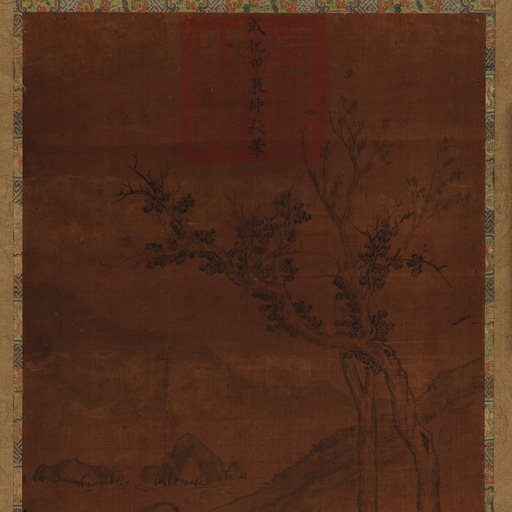 成化甲辰仲秋筆